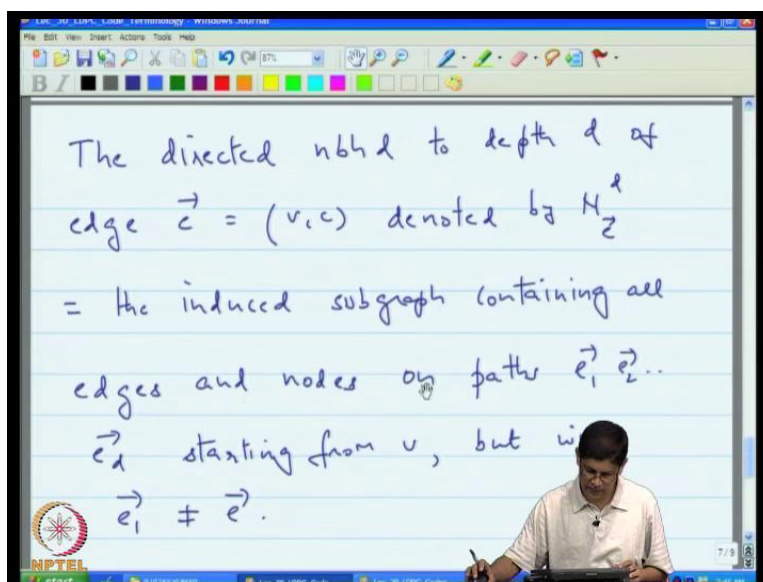 Lec_30_LDPC_Code_Terminology - Windows Journal
File Edit View Insert Actions Tools Help
87%
B I
The directed nbhd to depth d of
edge e⃗ = (v, c) denoted by N_e⃗^d
= the induced subgraph containing all
edges and nodes on paths e⃗₁ e⃗₂ ..
e⃗_d starting from v, but
e⃗₁ ≠ e⃗.
7/9
NPTEL
start